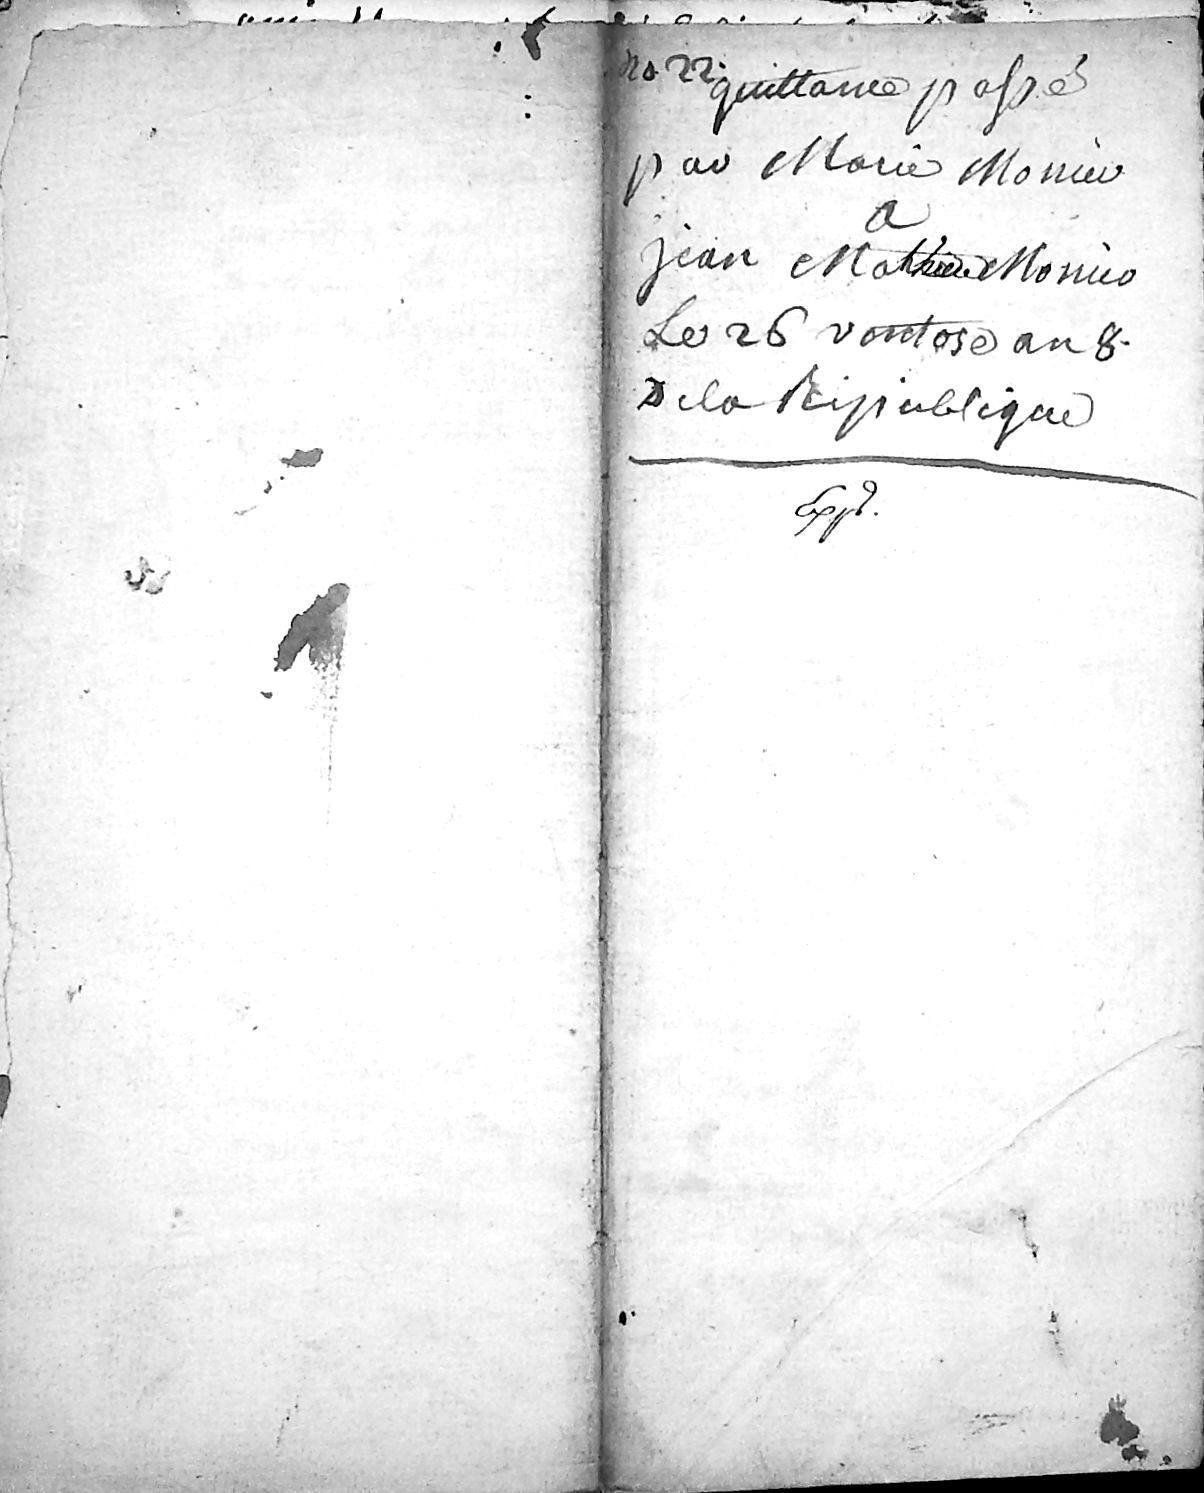 no 22 quittance passé
par Marie Monier
a
jean Mathieu Monier
Le 26 ventose an 8.
De la Republique